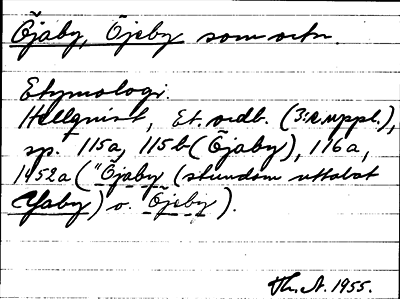 Öjaby, Öjeby som ortn.
Etymologi.
Hellquist, Et. ordb. (3:e uppl.),
sp. 115a, 115b (Öjaby), 116a,
1452a ("Öjaby (stundom uttalat
Yaby) o. Öjeby).
Th. A. 1955.